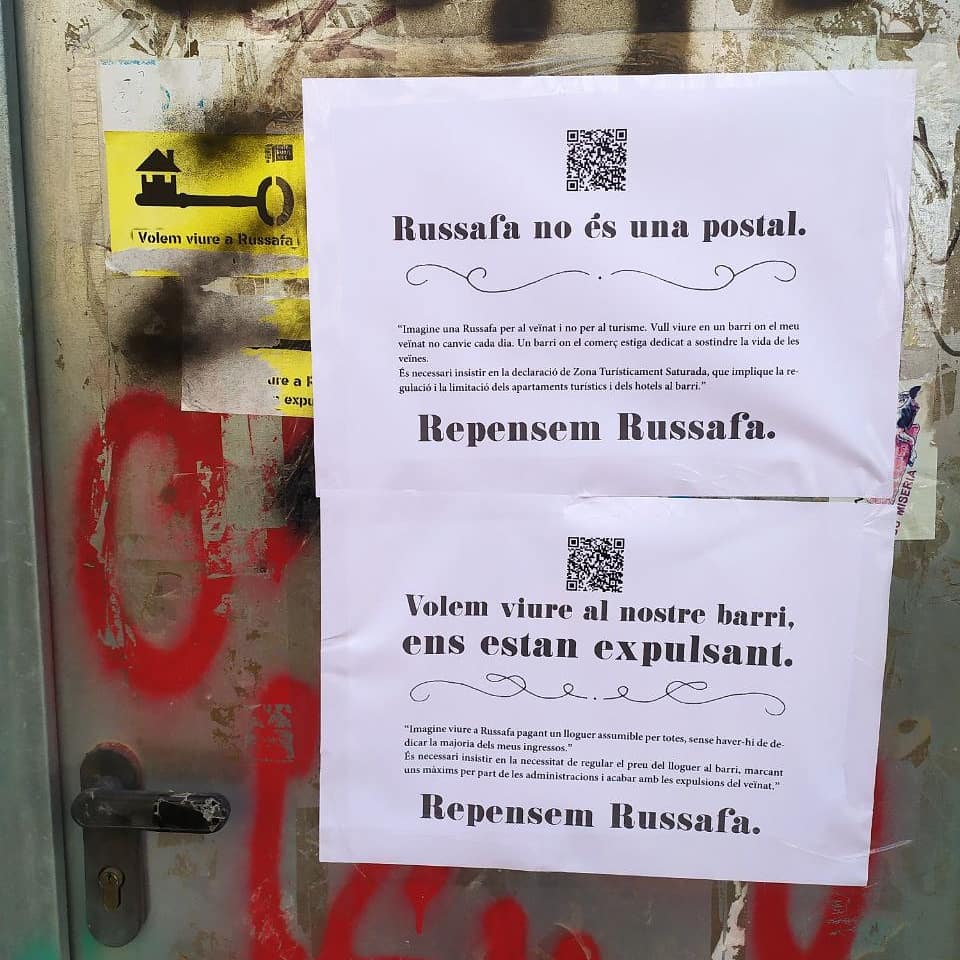 Volem viure a Russafa
ure a R
expu
Russafa no és una postal.
“Imagine una Russafa per al veïnat i no per al turisme. Vull viure en un barri on el meu
veïnat no canvie cada dia. Un barri on el comerç estiga dedicat a sostindre la vida de les
veïnes.
És necessari insistir en la declaració de Zona Turísticament Saturada, que implique la re-
gulació i la limitació dels apartaments turístics i dels hotels al barri.”
Repensem Russafa.
MISERIA
Volem viure al nostre barri,
ens estan expulsant.
“Imagine viure a Russafa pagant un lloguer assumible per totes, sense haver-hi de de-
dicar la majoria dels meus ingressos.”
És necessari insistir en la necessitat de regular el preu del lloguer al barri, marcant
uns màxims per part de les administracions i acabar amb les expulsions del veïnat.”
Repensem Russafa.